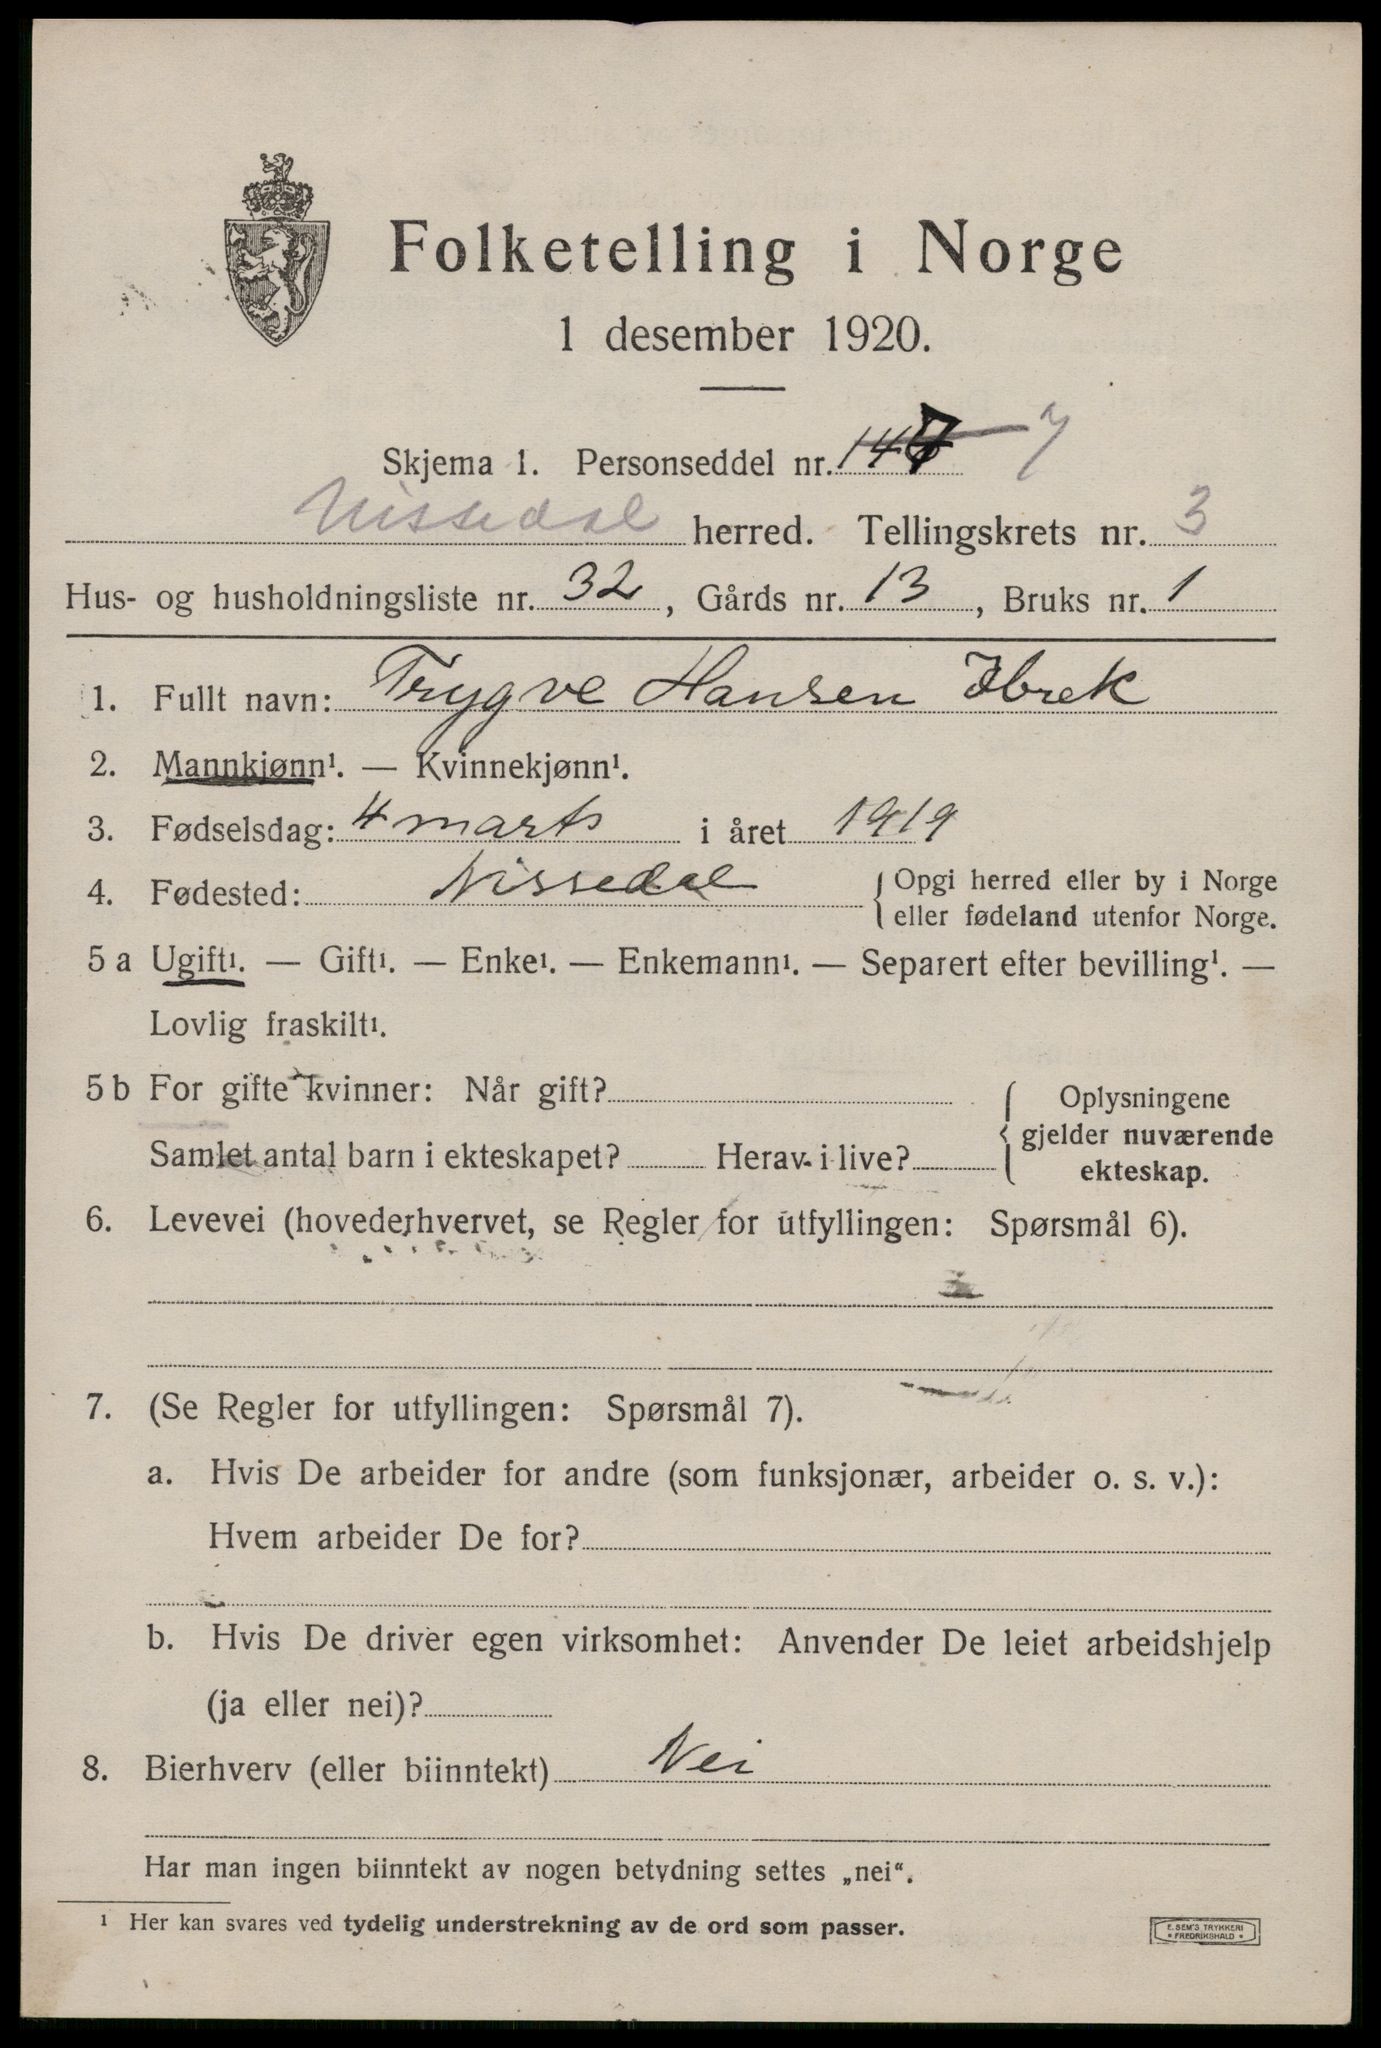 Folketelling i Norge
1 desember 1920.
Skjema 1. Personseddel nr. 147 7
Nissedal herred. Tellingskrets nr. 3
Hus- og husholdningsliste nr. 32, Gårds nr. 13, Bruks nr. 1
1. Fullt navn: Trygve Hansen
2. Mannkjønn¹. — Kvinnekjønn¹.
3. Fødselsdag: 4 marts i året 1919
4. Fødested: Nissedal { Opgi herred eller by i Norge
eller fødeland utenfor Norge.
5 a Ugift¹. — Gift¹. — Enke¹. — Enkemann¹. — Separert efter bevilling¹. —
Lovlig fraskilt¹.
5 b For gifte kvinner: Når gift?
Samlet antal barn i ekteskapet? Herav i live?
{ Oplysningene
gjelder nuværende
ekteskap.
6. Levevei (hovederhvervet, se Regler for utfyllingen: Spørsmål 6).
7. (Se Regler for utfyllingen: Spørsmål 7).
a. Hvis De arbeider for andre (som funksjonær, arbeider o. s. v.):
Hvem arbeider De for?
b. Hvis De driver egen virksomhet: Anvender De leiet arbeidshjelp
(ja eller nei)?
8. Bierhverv (eller biinntekt) Nei
Har man ingen biinntekt av nogen betydning settes „nei“.
¹ Her kan svares ved tydelig understrekning av de ord som passer.
E. SEM'S TRYKKERI
* FREDRIKSHALD *